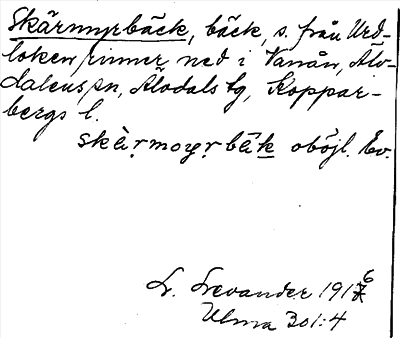 Skärmyrbäck, bäck, s. från Urd-
loken, rinner ned i Vanån, Älv-
dalens sn, Älvdals tg, Koppar-
bergs l.
skärmoyrbäk oböjl. Ev.
L. Levander 1916
Ulma 301:4